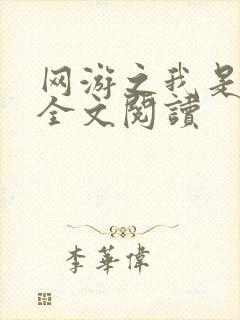 网游之我是
全文閱讀
李華偉